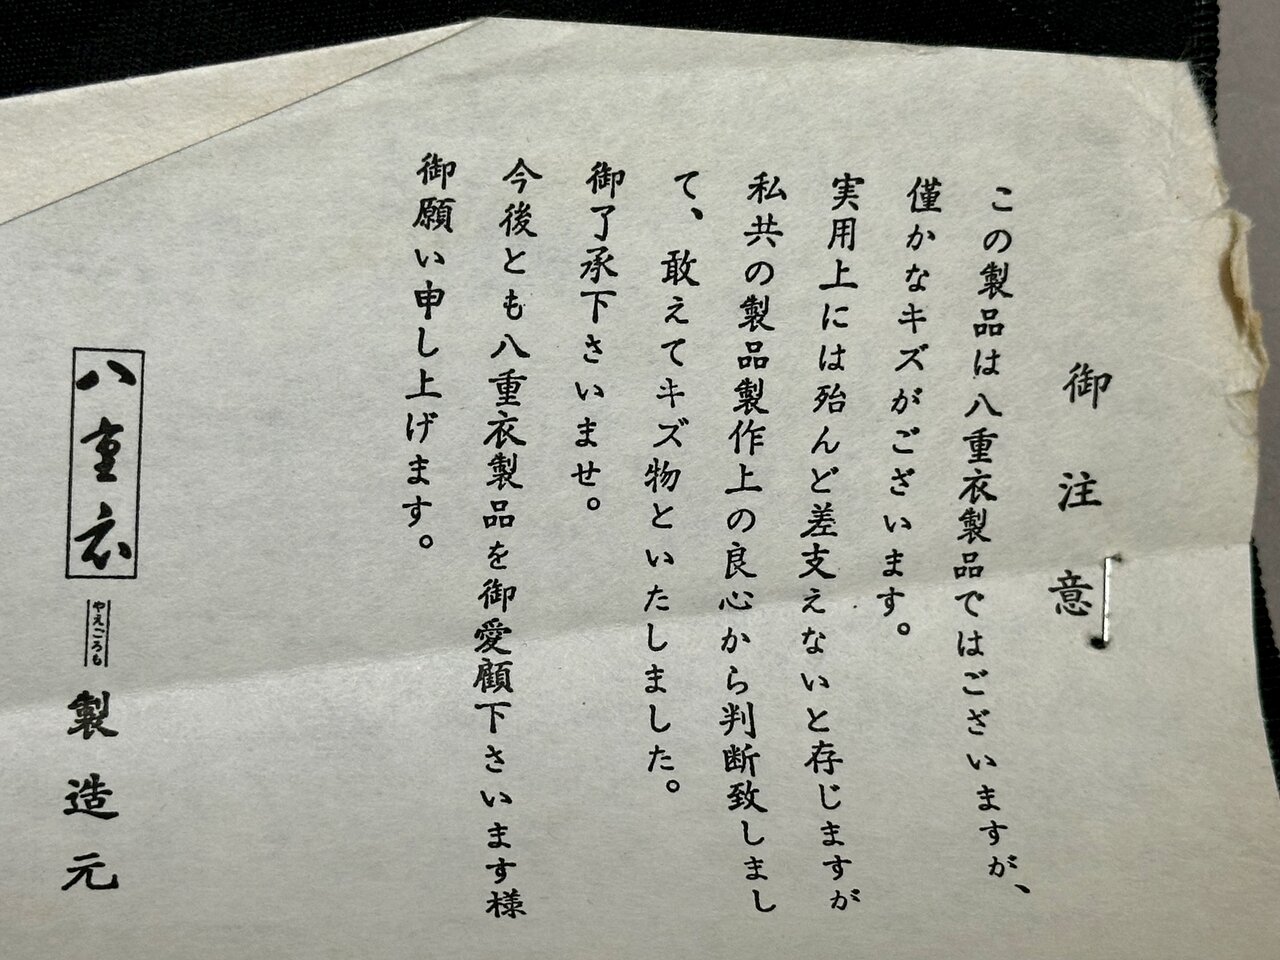 御注意
この製品は八重衣製品ではございますが、
僅かなキズがございます。
実用上には殆んど差支えないと存じますが
私共の製品製作上の良心から判断致しまし
て、敢えてキズ物といたしました。
御了承下さいませ。
今後とも八重衣製品を御愛顧下さいます様
御願い申し上げます。
八重衣 やえごろも 製造元